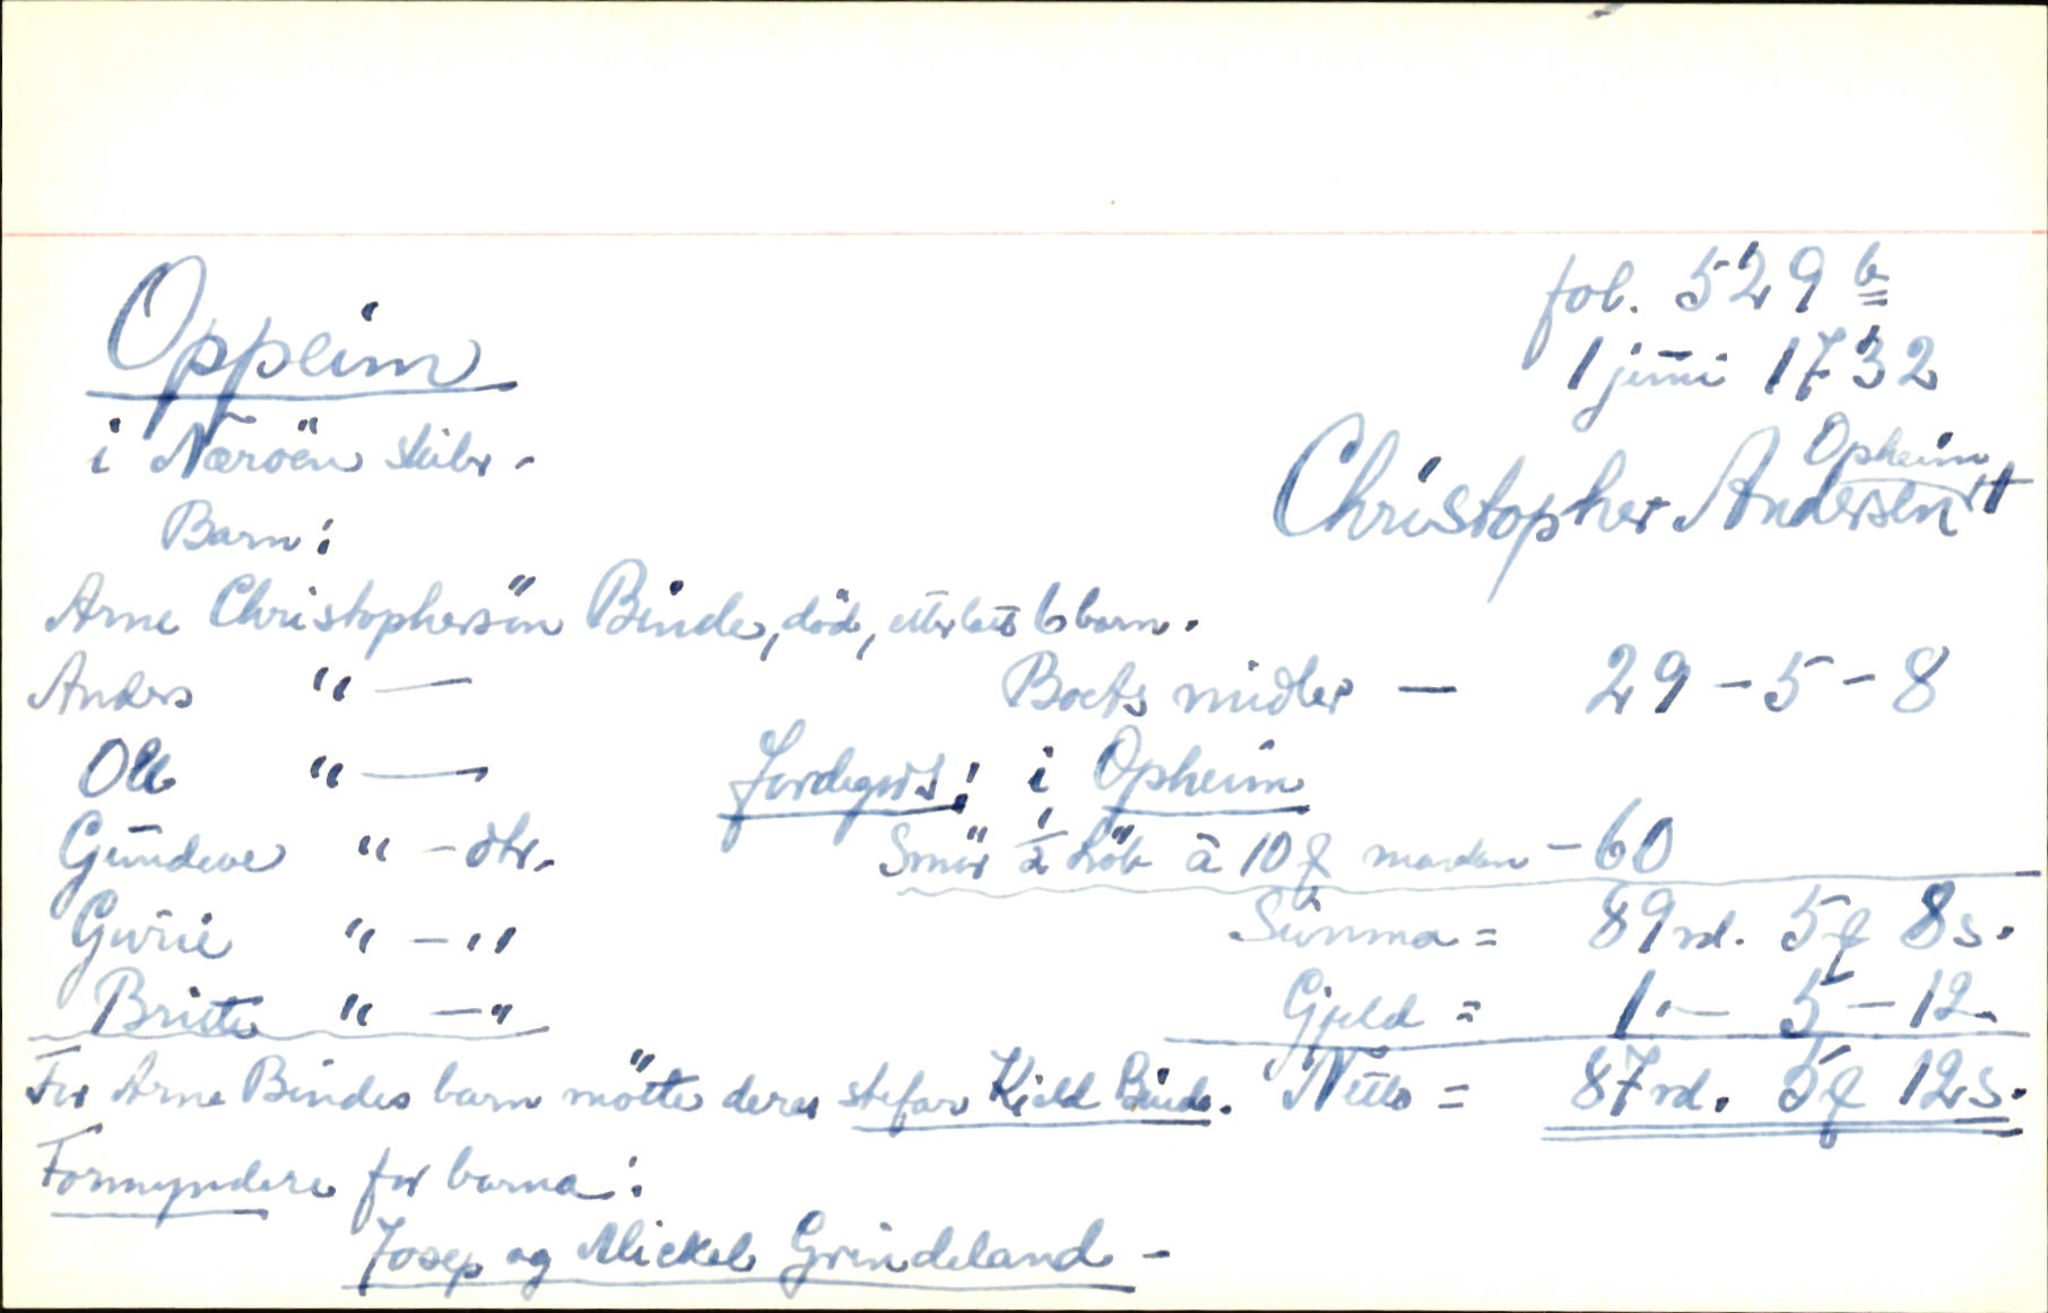 Oppeim
fol. 529 b
1 juni 1732
i Næröen skibr -
Opheim
Christopher Andersen †
Barn:
Arne Christophersön Binde, död, etterlot 6 barn.
Anders " —
Boets midler — 29 - 5 - 8
Ole " —
Jordegods: i Opheim
Gundeve " - dtr.
Smör ½ Löb à 10 marken - 60
Gurie " - "
Summa = 89 rd. 5 8 s.
Britte " - "
Gjeld = 1 - 5 - 12.
For Arne Bindes barn mötte deres stefar Kield Binde.
Netto = 87 rd. 5 12 s.
Formyndere for barna:
Josep og Mickel Grindeland -